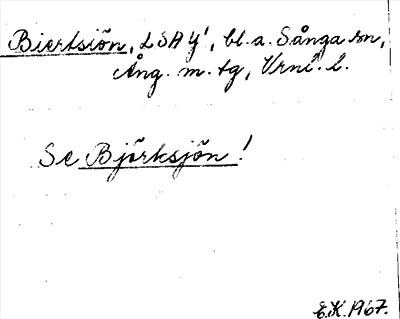 Biertsiön, LSA y', bl.a. Sånga sn,
Ång. m. tg, Vrnl. l.
Se Björksjön!
E.K. 1967.